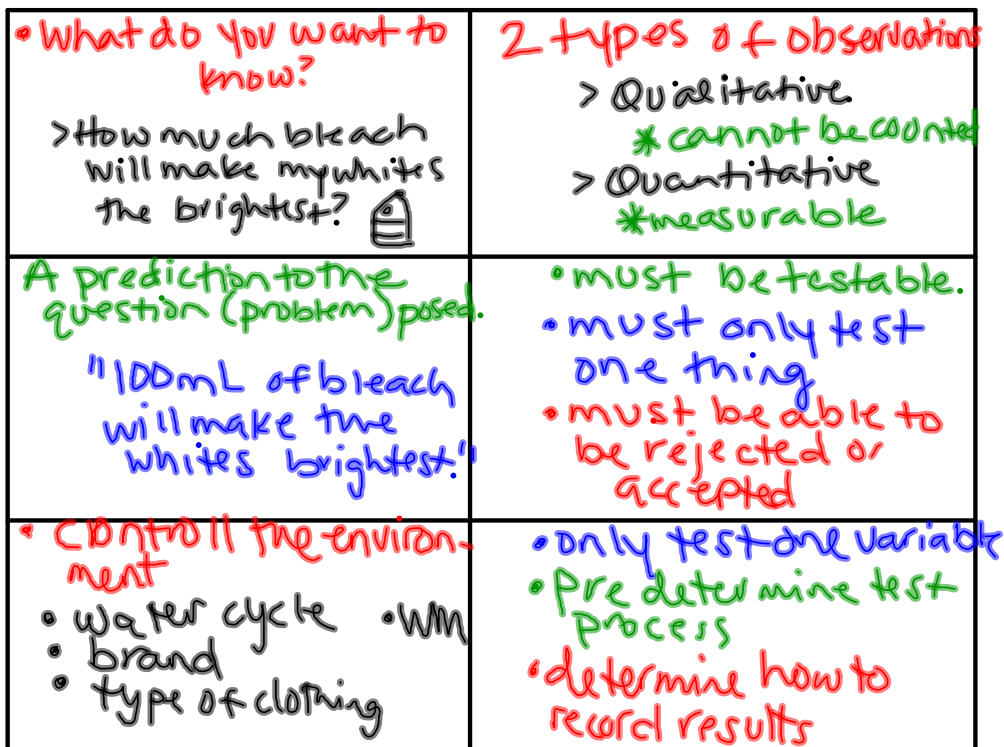 • What do you want to
know?
> How much bleach
will make my whites
the brightest?
2 types of observations
> Qualitative
* cannot be counted
> Quantitative
* measurable
A prediction to the
question (problem) posed.
"100mL of bleach
will make the
whites brightest."
• must be testable.
• must only test
one thing
• must be able to
be rejected or
accepted
• controll the environ-
ment
• water cycle • WM
• brand
• type of clothing
• only test one variable
• Pre determine test
process
• determine how to
record results